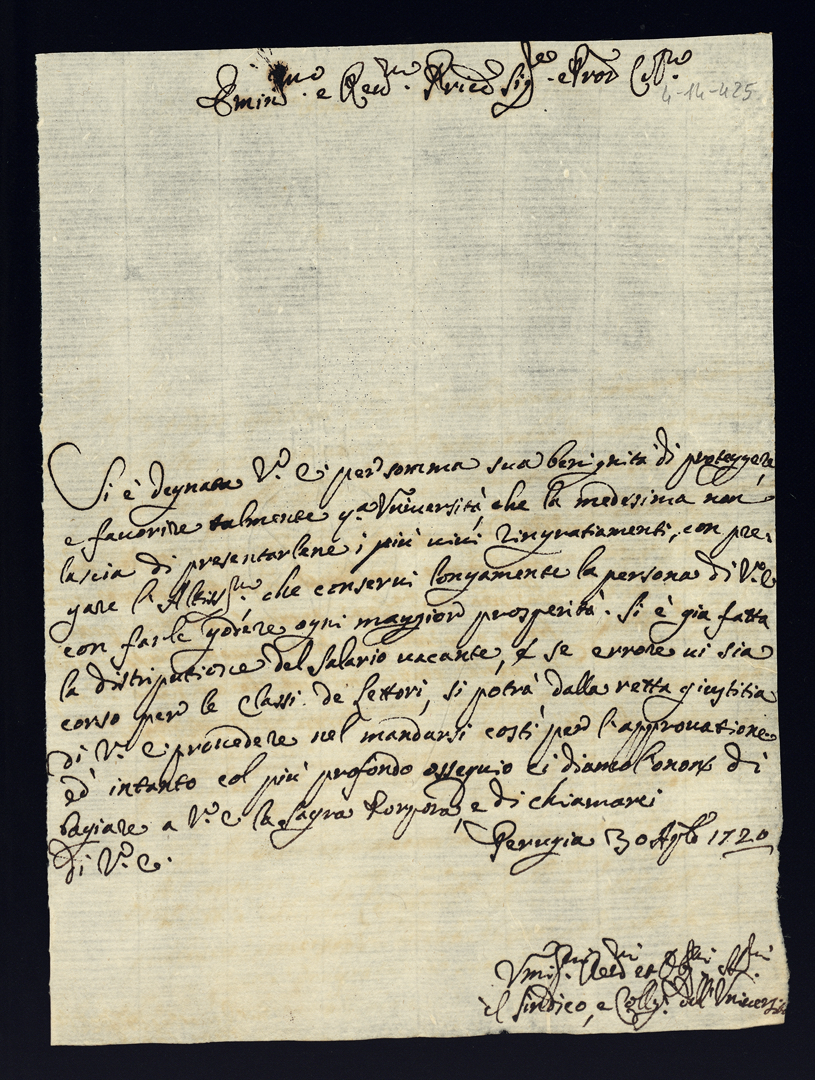 Emin.mo e Rev.mo Prncp Sig.re e Pron Col.mo
4-14-425
Si è degnata V.ra E. per somma sua benignità di proteggere
e favorire talmente q.a Università, che la medesima non
lascia di presentarlene i più vivi ringratiamenti, con pre-
gare l'Altiss.mo, che conservi longamente la persona di V.ra E
con farle godere ogni maggior prosperità. Si è gia fatta
la distributione del salario vacante, e se errore vi sia
corso per le Classi de Lettori, si potrà dalla retta giustitia
di V.ra E. provedere nel mandarsi costì per l'approvatione
ed intanto col più profondo ossequio ci diamo l'onore di
bagiare a V.ra E la Sagra Porpora, e di chiamarci
di V.ra E.
Perugia 30 Ag.to 1720
Vmiss.mi Dev.mi et Obb.mi
il Sindico, e Colleg. dell'Universi